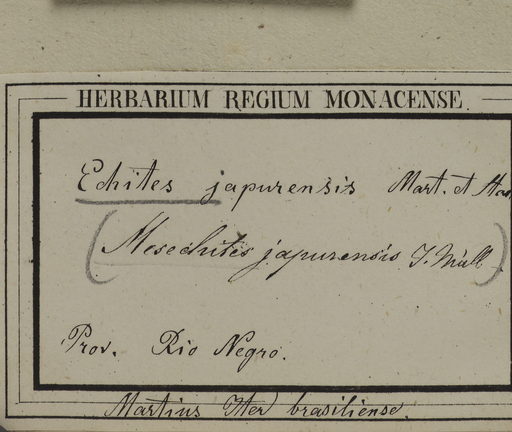 HERBARIUM REGIUM MONACENSE.
Echites japurensis Mart. et
(Mesechites japurensis J. Müll.)
Prov. Rio Negro.
Martius Iter brasiliense.